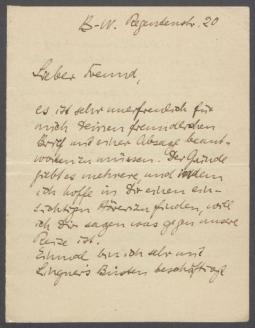 B-W. Regentenstr. 20
Lieber Freund,
es ist sehr unerfreulich für
mich Deinen freundlichen
Brief mit einer Absage beant-
worten zu müssen. Der Gründe
giebt es mehrere und indem
ich hoffe in Dir einen ein-
sichtigen Hörer zu finden, will
ich Dir sagen was gegen unsere
Reise ist.
Einmal bin ich sehr mit
Büsten beschäftigt